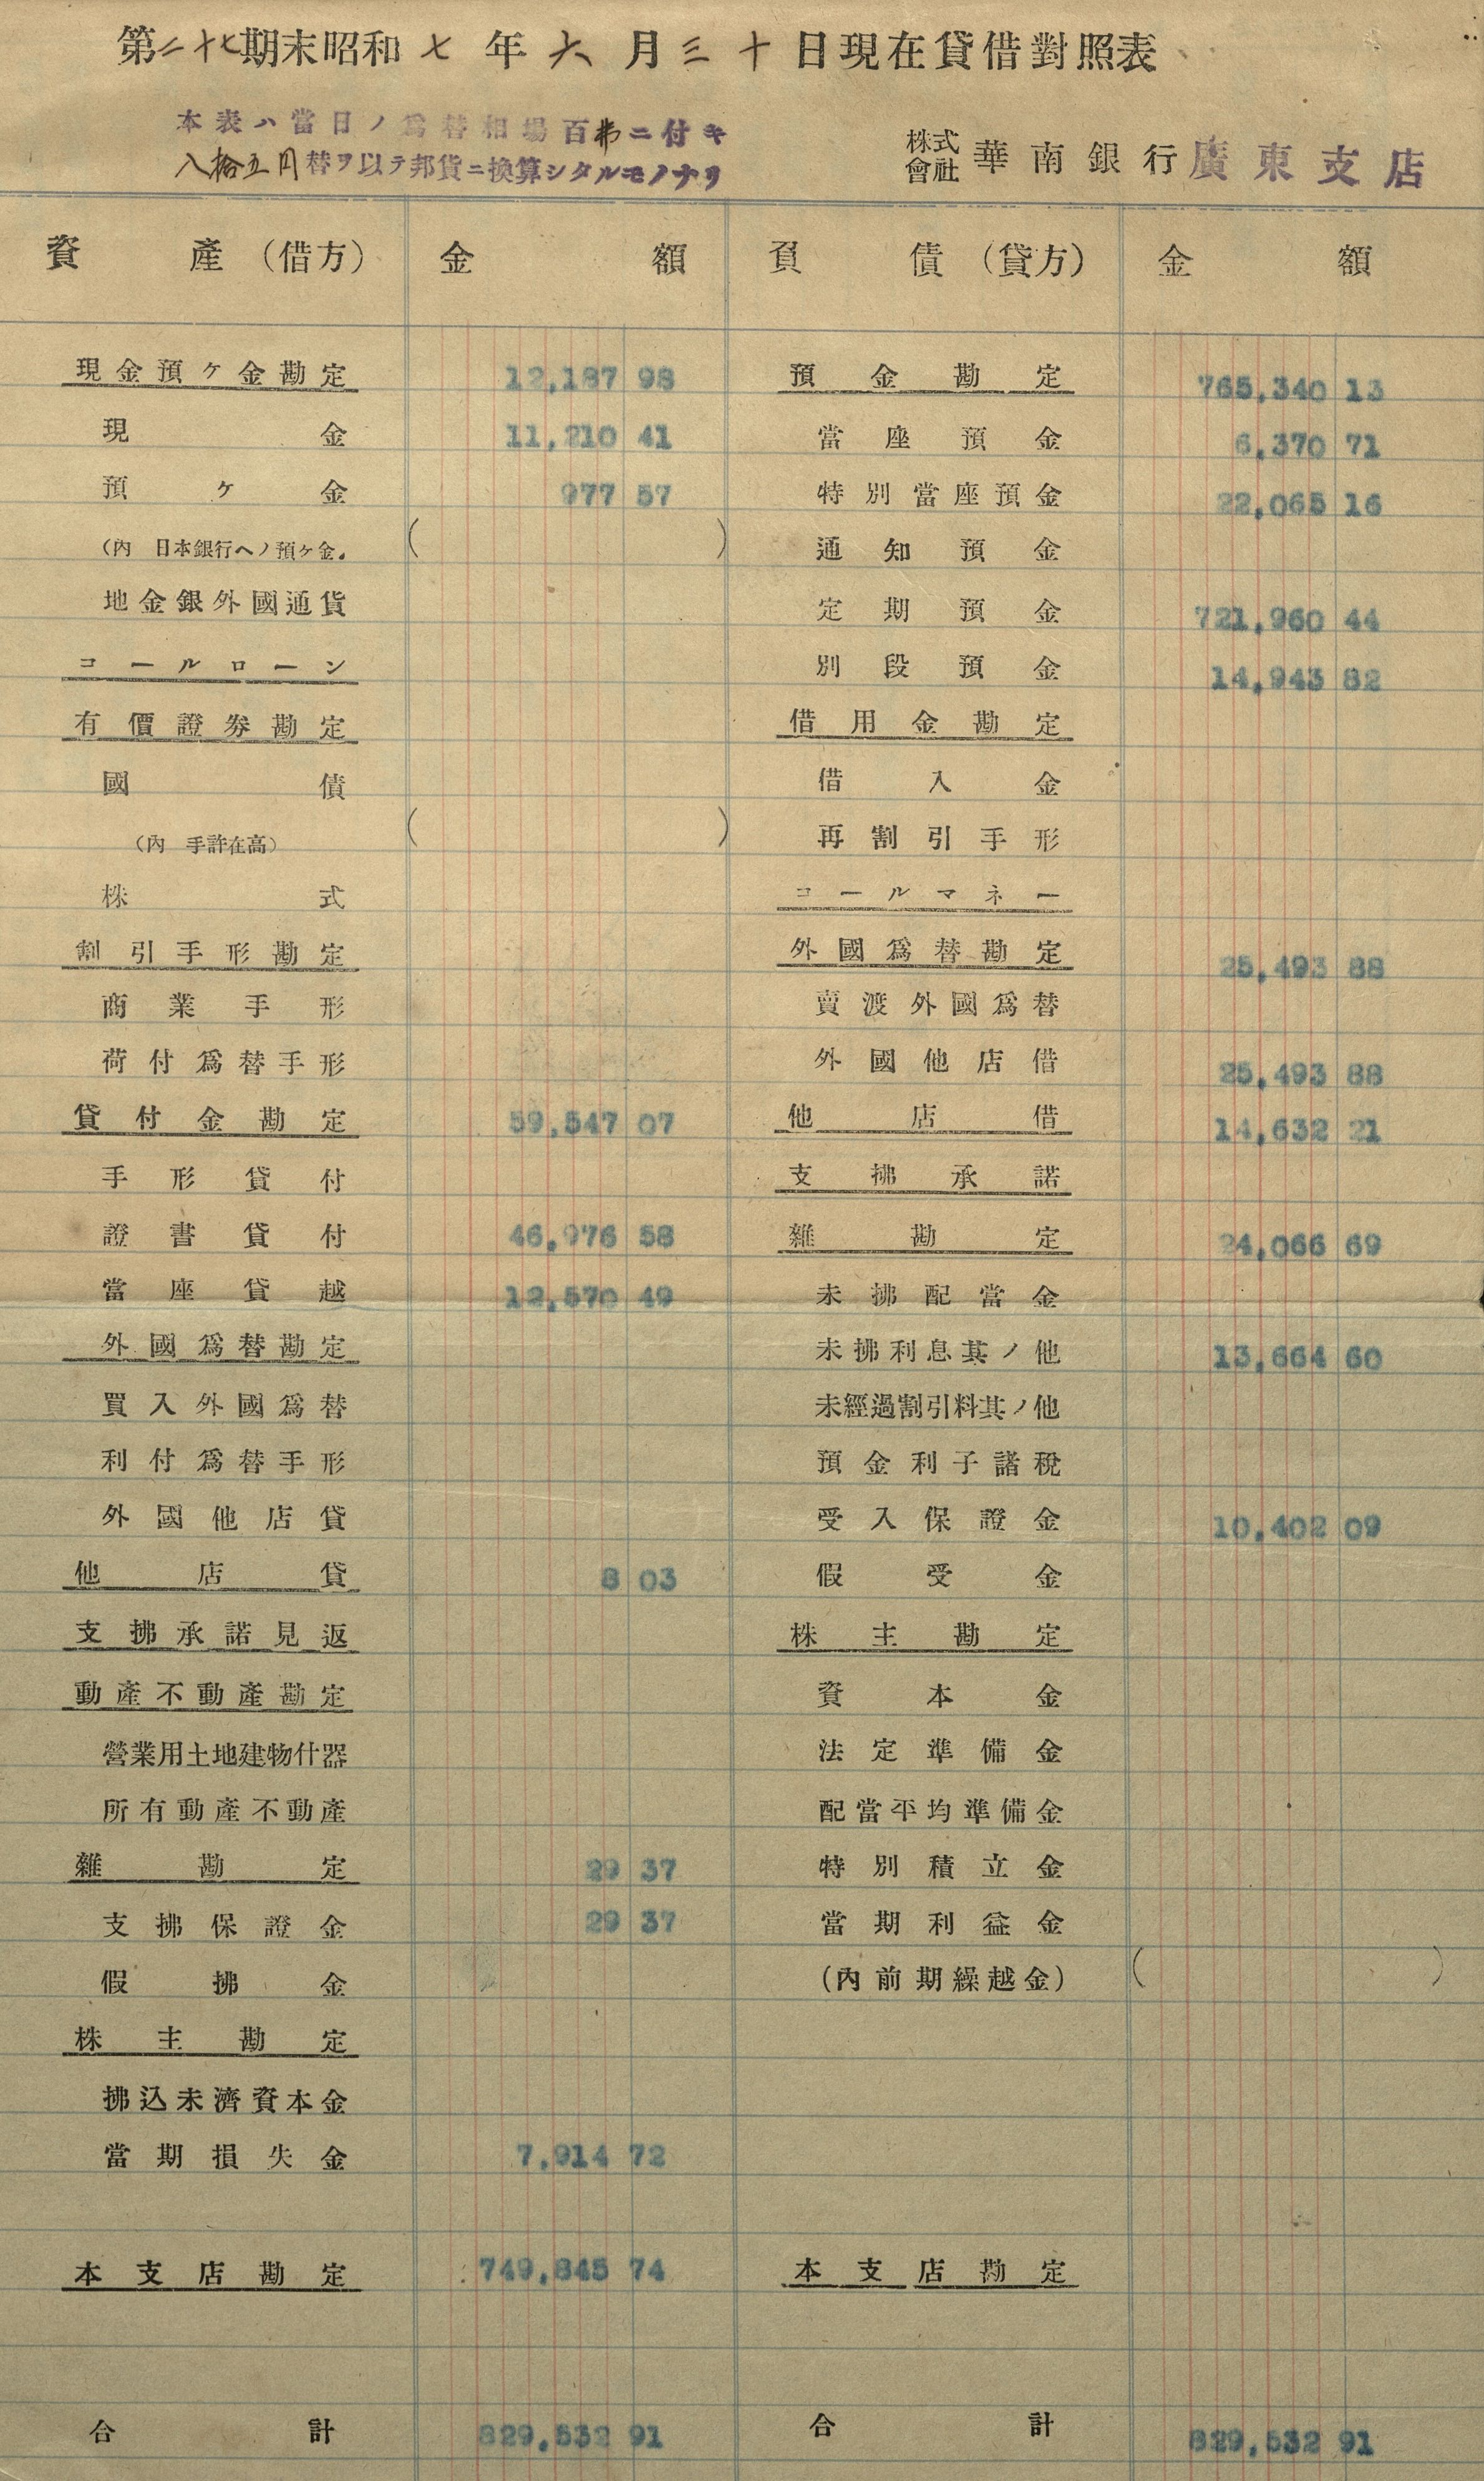 第二十七期末昭和七年六月三十日現在貸借對照表
本表ハ當日ノ爲替相場百弗ニ付キ
八拾五円替ヲ以テ邦貨ニ換算シタルモノナリ
株式會社華南銀行廣東支店
資產(借方) 金額 負債(貸方) 金額
現金預ケ金勘定 12,187 98 預金勘定 765,340 13
現金 11,210 41 當座預金 6,370 71
預ケ金 977 57 特別當座預金 22,065 16
(內 日本銀行ヘノ預ケ金. ( ) 通知預金
地金銀外國通貨 定期預金 721,960 44
コールローン 別段預金 14,943 82
有價證券勘定 借用金勘定
國債 借入金
(內 手許在高) ( ) 再割引手形
株式 コールマネー
割引手形勘定 外國爲替勘定 25,493 88
商業手形 賣渡外國爲替
荷付爲替手形 外國他店借 25,493 88
貸付金勘定 59,547 07 他店借 14,632 21
手形貸付 支拂承諾
證書貸付 46,976 58 雜勘定 24,066 69
當座貸越 12,570 49 未拂配當金
外國爲替勘定 未拂利息其ノ他 13,664 60
買入外國爲替 未經過割引料其ノ他
利付爲替手形 預金利子諸稅
外國他店貸 受入保證金 10,402 09
他店貸 8 03 假受金
支拂承諾見返 株主勘定
動產不動產勘定 資本金
營業用土地建物什器 法定準備金
所有動產不動產 配當平均準備金
雜勘定 29 37 特別積立金
支拂保證金 29 37 當期利益金
假拂金 (內前期繰越金) ( )
株主勘定
拂込未濟資本金
當期損失金 7,914 72
本支店勘定 749,845 74 本支店勘定
合計 829,532 91 合計 829,532 91